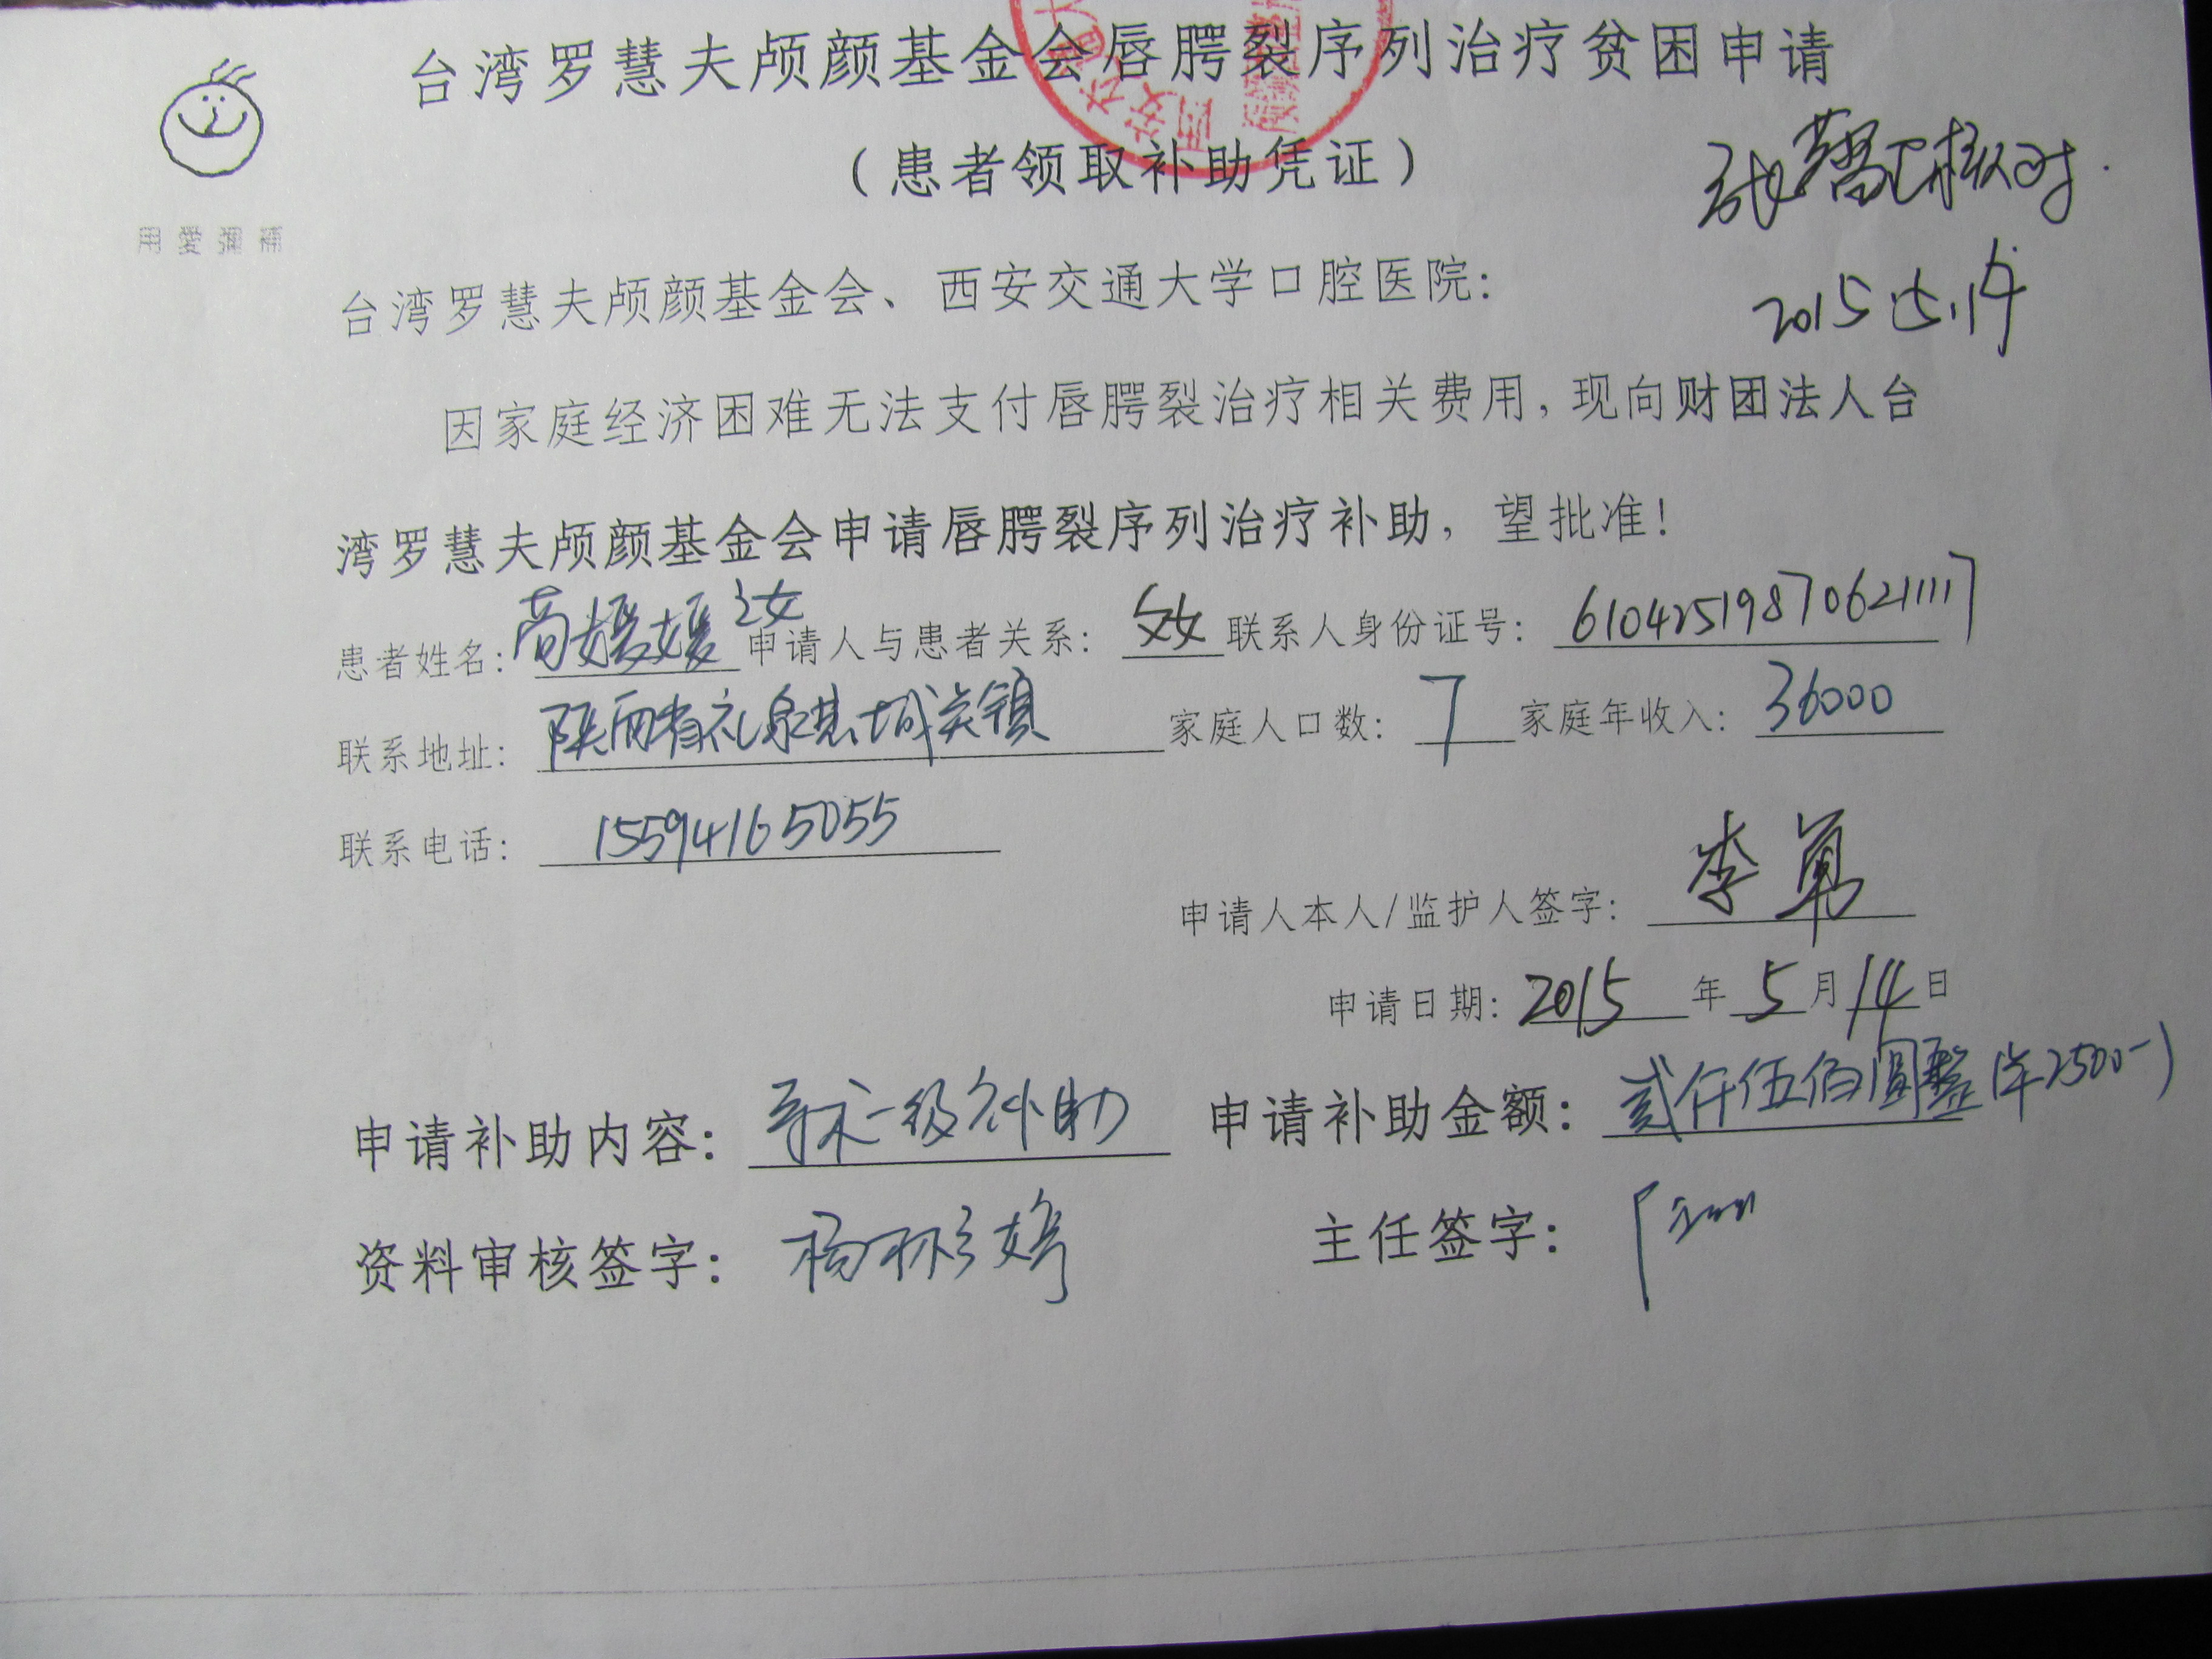 台湾罗慧夫颅颜基金会唇腭裂序列治疗贫困申请
（患者领取补助凭证）
已核对.
2015.5.14
用愛彌補
台湾罗慧夫颅颜基金会、西安交通大学口腔医院：
因家庭经济困难无法支付唇腭裂治疗相关费用，现向财团法人台
湾罗慧夫颅颜基金会申请唇腭裂序列治疗补助，望批准！
患者姓名：苟媛媛之女 申请人与患者关系：父女 联系人身份证号：610425198706211117
联系地址：陕西省礼泉县城关镇 家庭人口数：7 家庭年收入：36000
联系电话：15594165055
申请人本人/监护人签字：李勇
申请日期：2015年5月14日
申请补助内容：手术一级补助 申请补助金额：贰仟伍佰圆整(¥2500-)
资料审核签字：杨彩婷 主任签字：